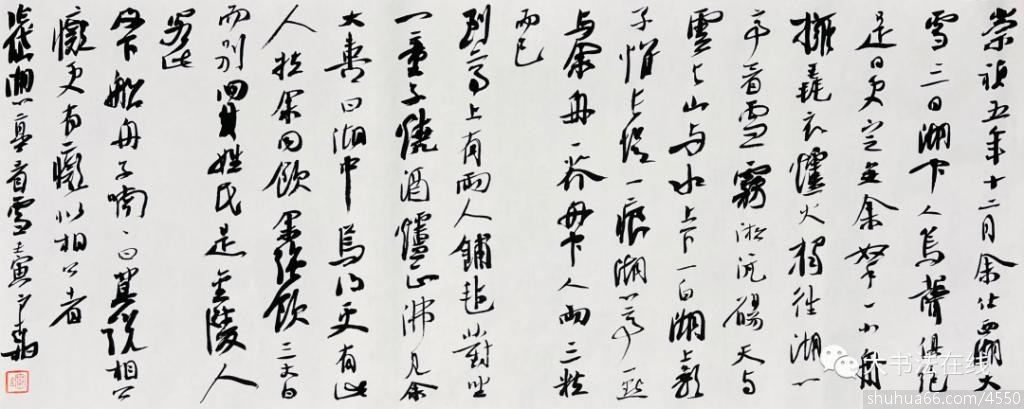 崇禎五年十二月余住西湖大
雪三日湖中人鳥聲俱絕
是日更定矣余拏一小舟
擁毳衣爐火獨往湖心
亭看雪霧凇沆碭天与
雲与山与水上下一白湖上影
子惟長堤一痕湖心亭一點
与余舟一芥舟中人兩三粒
而已
到亭上有兩人鋪氈對坐
一童子燒酒爐正沸見余
大喜曰湖中焉得更有此
人拉余同飲余強飲三大白
而別問其姓氏是金陵人
客此
及下船舟子喃喃曰莫說相公
癡更有癡似相公者
張岱湖心亭看雪
大书法在线
shuhua66.com/4550